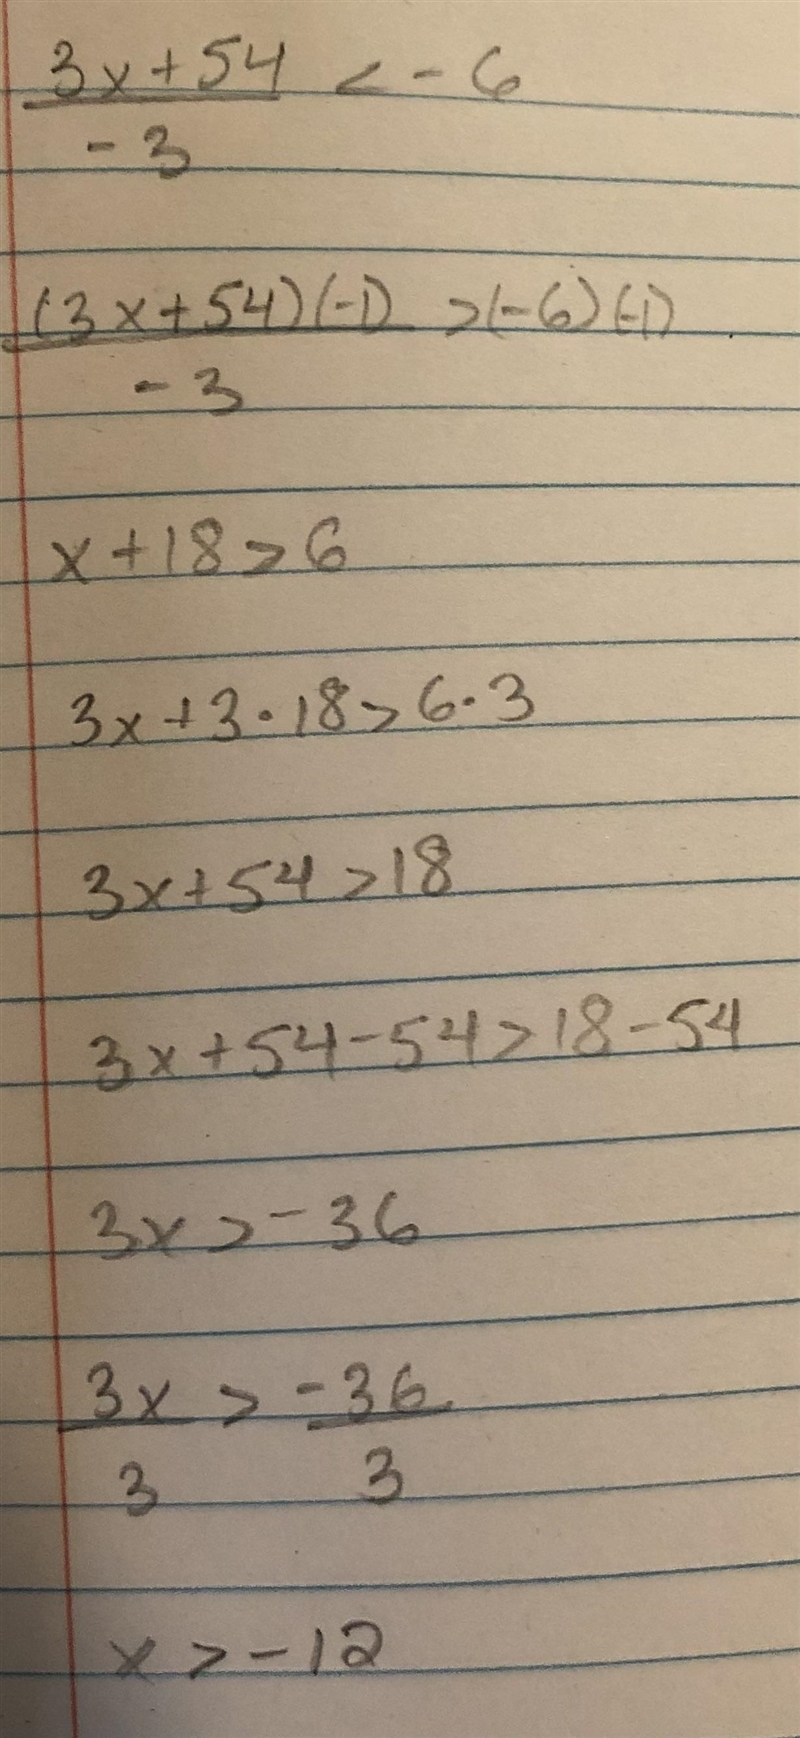 3x+54 < -6
-3
(3x+54)(-1) >(-6)(-1)
-3
x+18>6
3x+3·18>6·3
3x+54>18
3x+54-54>18-54
3x>-36
3x > -36
3 3
x>-12